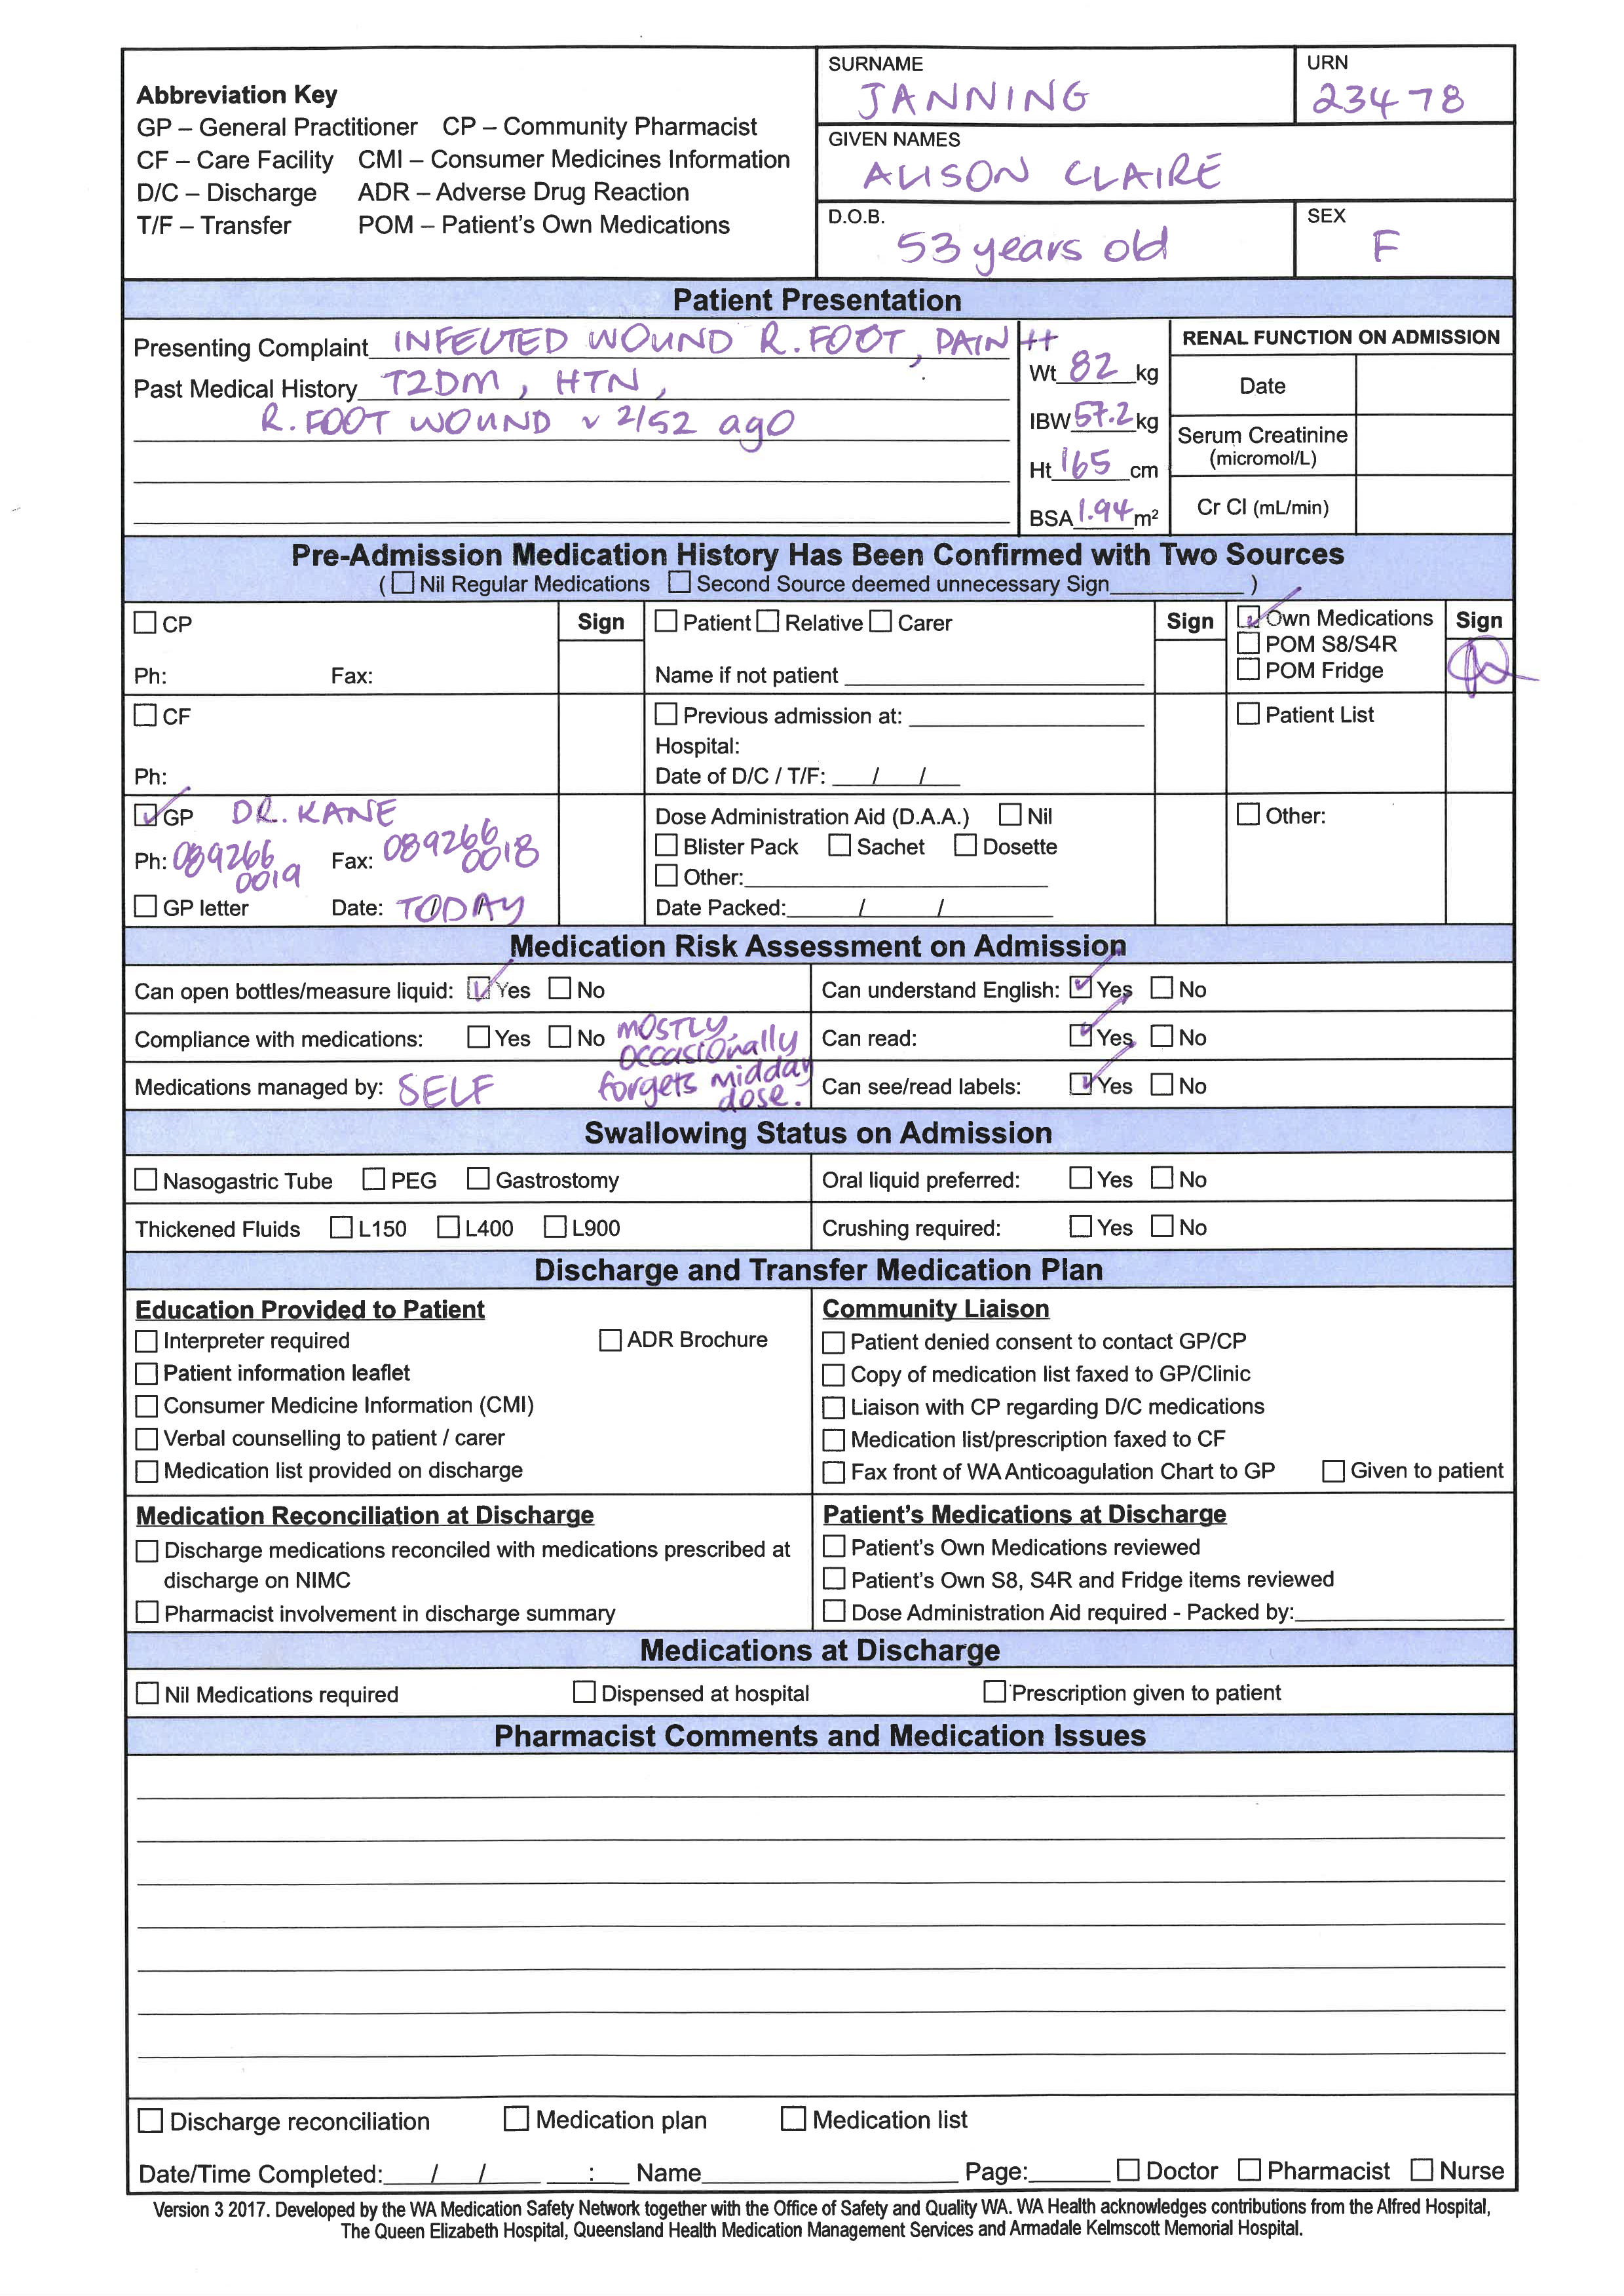 Abbreviation Key
GP – General Practitioner CP – Community Pharmacist
CF – Care Facility CMI – Consumer Medicines Information
D/C – Discharge ADR – Adverse Drug Reaction
T/F – Transfer POM – Patient's Own Medications
SURNAME
JANNING
URN
23478
GIVEN NAMES
ALISON CLAIRE
D.O.B.
53 years old
SEX
F
Patient Presentation
Presenting Complaint INFECTED WOUND R. FOOT, PAIN ++
Past Medical History T2DM, HTN,
R. FOOT WOUND ~ 2/52 ago
Wt 82 kg
IBW 57.2 kg
Ht 165 cm
BSA 1.94 m²
RENAL FUNCTION ON ADMISSION
Date
Serum Creatinine
(micromol/L)
Cr Cl (mL/min)
Pre-Admission Medication History Has Been Confirmed with Two Sources
( ☐ Nil Regular Medications ☐ Second Source deemed unnecessary Sign__________ )
☐ CP
Ph: Fax:
Sign
☐ Patient ☐ Relative ☐ Carer
Name if not patient
Sign
☑ Own Medications
☐ POM S8/S4R
☐ POM Fridge
Sign
☐ CF
Ph:
☐ Previous admission at:
Hospital:
Date of D/C / T/F: / /
☐ Patient List
☑ GP DR. KANE
Ph: 089266 0019 Fax: 089266 0018
☐ GP letter Date: TODAY
Dose Administration Aid (D.A.A.) ☐ Nil
☐ Blister Pack ☐ Sachet ☐ Dosette
☐ Other:
Date Packed: / /
☐ Other:
Medication Risk Assessment on Admission
Can open bottles/measure liquid: ☑ Yes ☐ No
Can understand English: ☑ Yes ☐ No
Compliance with medications: ☐ Yes ☐ No MOSTLY, occasionally forgets midday dose.
Can read: ☑ Yes ☐ No
Medications managed by: SELF
Can see/read labels: ☑ Yes ☐ No
Swallowing Status on Admission
☐ Nasogastric Tube ☐ PEG ☐ Gastrostomy
Oral liquid preferred: ☐ Yes ☐ No
Thickened Fluids ☐ L150 ☐ L400 ☐ L900
Crushing required: ☐ Yes ☐ No
Discharge and Transfer Medication Plan
Education Provided to Patient
☐ Interpreter required ☐ ADR Brochure
☐ Patient information leaflet
☐ Consumer Medicine Information (CMI)
☐ Verbal counselling to patient / carer
☐ Medication list provided on discharge
Community Liaison
☐ Patient denied consent to contact GP/CP
☐ Copy of medication list faxed to GP/Clinic
☐ Liaison with CP regarding D/C medications
☐ Medication list/prescription faxed to CF
☐ Fax front of WA Anticoagulation Chart to GP ☐ Given to patient
Medication Reconciliation at Discharge
☐ Discharge medications reconciled with medications prescribed at
discharge on NIMC
☐ Pharmacist involvement in discharge summary
Patient's Medications at Discharge
☐ Patient's Own Medications reviewed
☐ Patient's Own S8, S4R and Fridge items reviewed
☐ Dose Administration Aid required - Packed by:
Medications at Discharge
☐ Nil Medications required ☐ Dispensed at hospital ☐ Prescription given to patient
Pharmacist Comments and Medication Issues
☐ Discharge reconciliation ☐ Medication plan ☐ Medication list
Date/Time Completed: / / : Name Page: ☐ Doctor ☐ Pharmacist ☐ Nurse
Version 3 2017. Developed by the WA Medication Safety Network together with the Office of Safety and Quality WA. WA Health acknowledges contributions from the Alfred Hospital,
The Queen Elizabeth Hospital, Queensland Health Medication Management Services and Armadale Kelmscott Memorial Hospital.